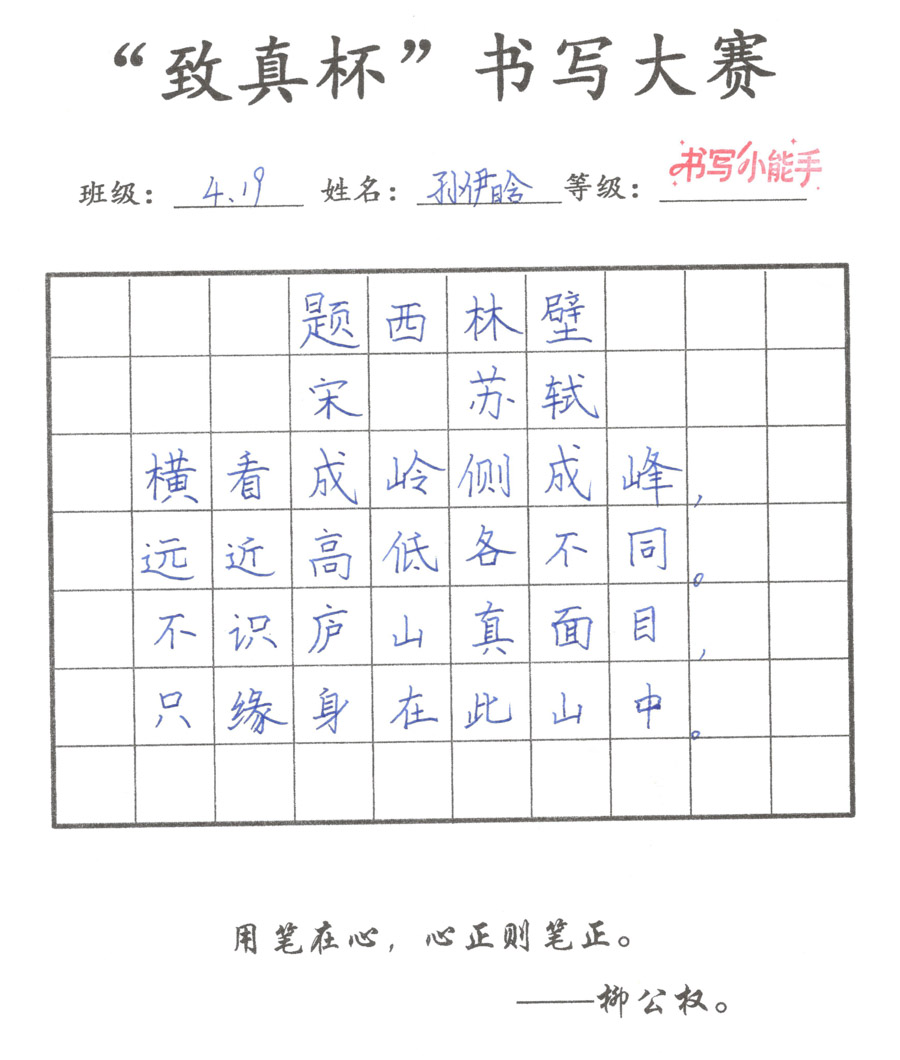 “致真杯”书写大赛
班级：4.19 姓名：孙伊晗 等级：书写小能手
题西林壁
宋 苏轼
横看成岭侧成峰，
远近高低各不同。
不识庐山真面目，
只缘身在此山中。
用笔在心，心正则笔正。
——柳公权。